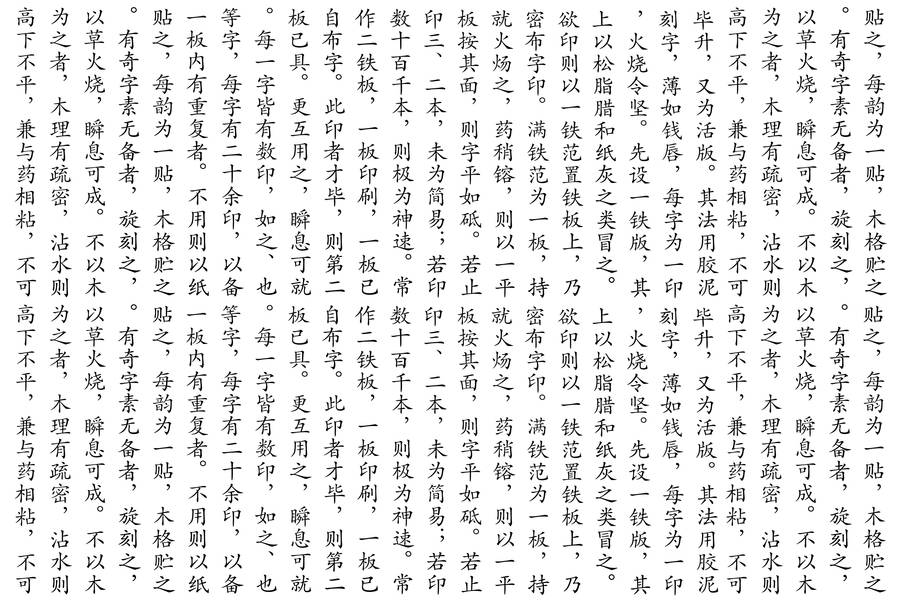 贴之，每韵为一贴，木格贮之
。有奇字素无备者，旋刻之，
以草火烧，瞬息可成。不以木
为之者，木理有疏密，沾水则
高下不平，兼与药相粘，不可
毕升，又为活版。其法用胶泥
刻字，薄如钱唇，每字为一印
，火烧令坚。先设一铁版，其
上以松脂腊和纸灰之类冒之。
欲印则以一铁范置铁板上，乃
密布字印。满铁范为一板，持
就火炀之，药稍镕，则以一平
板按其面，则字平如砥。若止
印三、二本，未为简易；若印
数十百千本，则极为神速。常
作二铁板，一板印刷，一板已
自布字。此印者才毕，则第二
板已具。更互用之，瞬息可就
。每一字皆有数印，如之、也
等字，每字有二十余印，以备
一板内有重复者。不用则以纸
贴之，每韵为一贴，木格贮之
。有奇字素无备者，旋刻之，
以草火烧，瞬息可成。不以木
为之者，木理有疏密，沾水则
高下不平，兼与药相粘，不可
贴之，每韵为一贴，木格贮之
。有奇字素无备者，旋刻之，
以草火烧，瞬息可成。不以木
为之者，木理有疏密，沾水则
高下不平，兼与药相粘，不可
毕升，又为活版。其法用胶泥
刻字，薄如钱唇，每字为一印
，火烧令坚。先设一铁版，其
上以松脂腊和纸灰之类冒之。
欲印则以一铁范置铁板上，乃
密布字印。满铁范为一板，持
就火炀之，药稍镕，则以一平
板按其面，则字平如砥。若止
印三、二本，未为简易；若印
数十百千本，则极为神速。常
作二铁板，一板印刷，一板已
自布字。此印者才毕，则第二
板已具。更互用之，瞬息可就
。每一字皆有数印，如之、也
等字，每字有二十余印，以备
一板内有重复者。不用则以纸
贴之，每韵为一贴，木格贮之
。有奇字素无备者，旋刻之，
以草火烧，瞬息可成。不以木
为之者，木理有疏密，沾水则
高下不平，兼与药相粘，不可